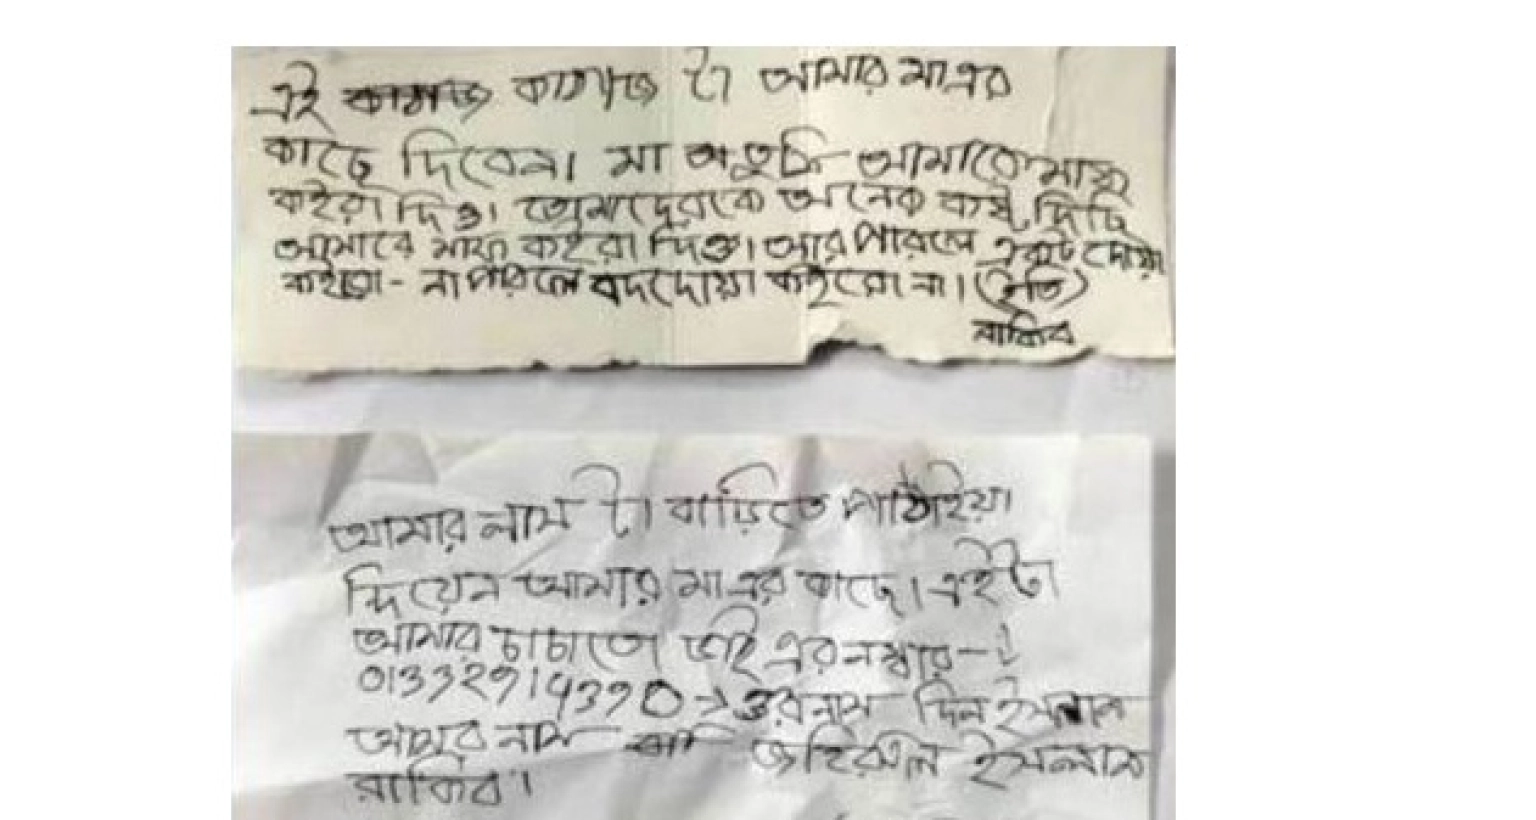 এই কাগজ কাগজ টা আমার মাএর
কাছে দিবেন। মা তুমি আমাকে মাফ
কইরা দিও। তোমাদেরকে অনেক কষ্ট দিছি
আমারে মাফ কইরা দিও। আর পারলে একটু দোয়া
কইরো - না পারলে বদদোয়া কইরো না। (ইতি)
রাকিব
আমার লাস টা বাড়িতে পাঠাইয়া
দিয়েন আমার মাএর কাছে। এইটা
আমার চাচাতো ভাই এর নম্বার -
01332914390 → ওর নাম দিন ইসলাম
আমার নাম জহিরুল ইসলাম
রাকিব।